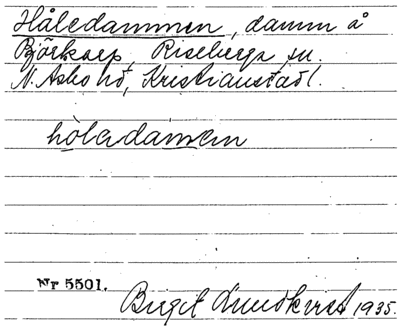 Håledammen, damm å
Björkarp, Riseberga sn.
N. Asbo hd, Kristianstad l.
håledam̄en
Nr 5501.
Birgit Lundkvist 1935.